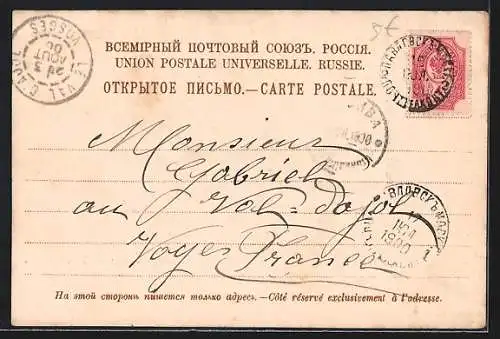 5€
ВСЕМІРНЫЙ ПОЧТОВЫЙ СОЮЗЪ. РОССІЯ.
UNION POSTALE UNIVERSELLE. RUSSIE.
ОТКРЫТОЕ ПИСЬМО.—CARTE POSTALE.
LE VAL D'AJOL
3
AOUT
00
VOSGES
Monsieur
Gabriel
au Val-d'ajol
Voges France
17
1900
1
На этой сторонѣ пишется только адресъ.—Côté réservé exclusivement à l'adresse.